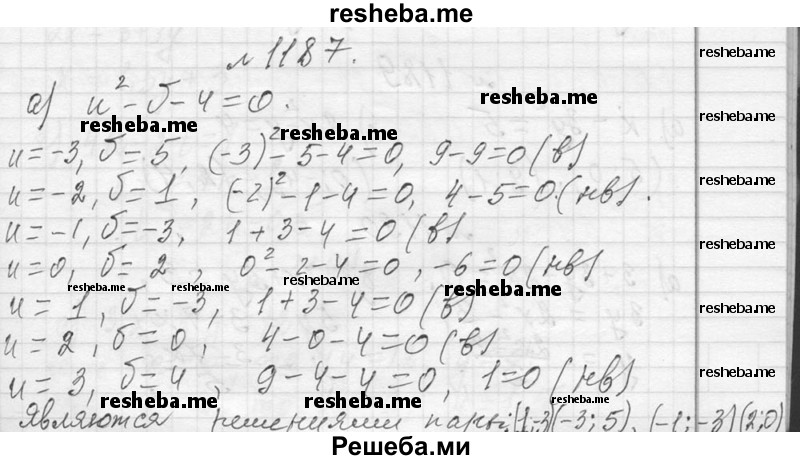 resheba.me
№ 1187.
resheba.me
а) u² - б - 4 = 0.
resheba.me
resheba.me
resheba.me
resheba.me
u = -3, б = 5, (-3)² - 5 - 4 = 0, 9 - 9 = 0 (в)
u = -2, б = 1, (-2)² - 1 - 4 = 0, 4 - 5 = 0. (нв).
resheba.me
u = -1, б = -3, 1 + 3 - 4 = 0 (в).
resheba.me
u = 0, б = 2, 0² - 2 - 4 = 0, -6 = 0 (нв)
resheba.me
resheba.me
resheba.me
resheba.me
u = 1, б = -3, 1 + 3 - 4 = 0 (в)
resheba.me
u = 2, б = 0, 4 - 0 - 4 = 0 (в)
u = 3, б = 4, 9 - 4 - 4 = 0, 1 = 0 (нв)
resheba.me
resheba.me
resheba.me
resheba.me
Являются решениями пары: (1;-3)(-3; 5), (-1; -3)(2;0)
Решеба.ми